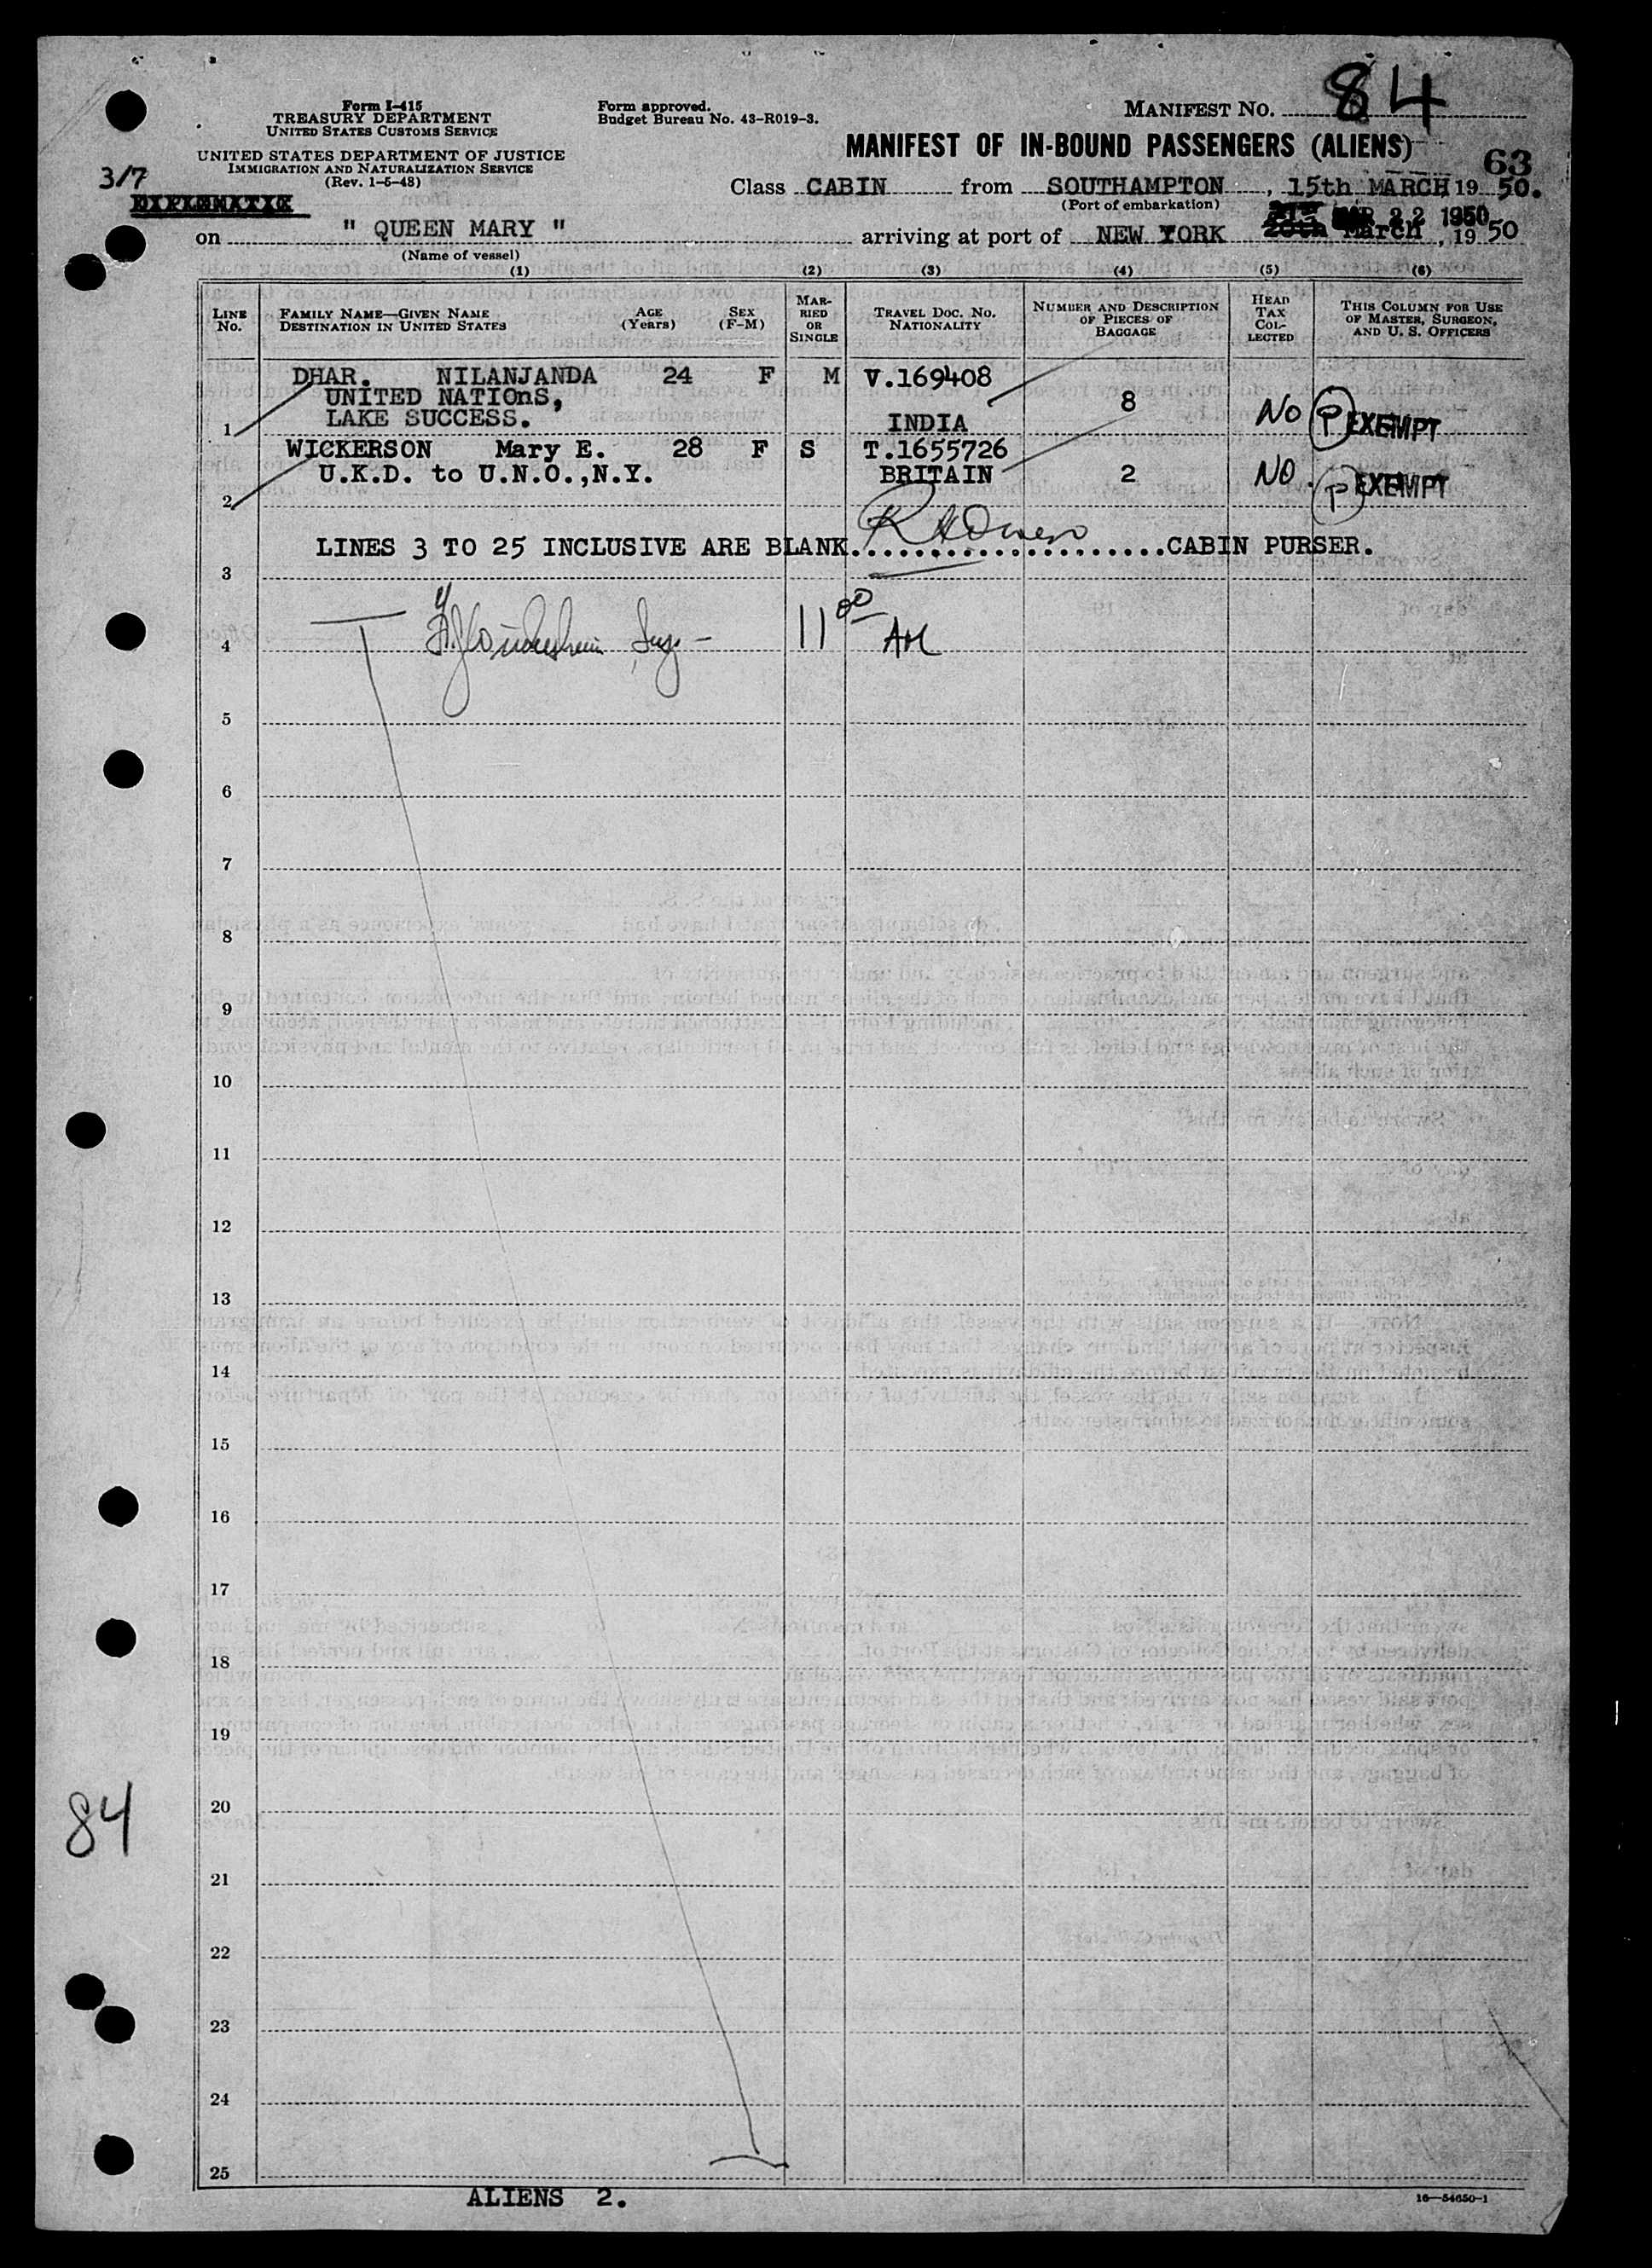 Form I-415
TREASURY DEPARTMENT
UNITED STATES CUSTOMS SERVICE
UNITED STATES DEPARTMENT OF JUSTICE
IMMIGRATION AND NATURALIZATION SERVICE
(Rev. 1-5-48)
Form approved.
Budget Bureau No. 43-R019-3.
MANIFEST NO. 84
MANIFEST OF IN-BOUND PASSENGERS (ALIENS)
63
3/7
DIPLOMATIC
Class CABIN from SOUTHAMPTON, 15th MARCH 19 50.
(Port of embarkation)
MAR 22 1950
on " QUEEN MARY " arriving at port of NEW YORK 20th March, 19 50
(Name of vessel)
(1) (2) (3) (4) (5) (6)
LINE No. FAMILY NAME—GIVEN NAME DESTINATION IN UNITED STATES AGE (Years) SEX (F-M) MARRIED OR SINGLE TRAVEL DOC. NO. NATIONALITY NUMBER AND DESCRIPTION OF PIECES OF BAGGAGE HEAD TAX COLLECTED THIS COLUMN FOR USE OF MASTER, SURGEON, AND U. S. OFFICERS
DHAR. NILANJANDA 24 F M V.169408
UNITED NATIOnS, 8
1 LAKE SUCCESS. INDIA NO P EXEMPT
WICKERSON Mary E. 28 F S T.1655726
U.K.D. to U.N.O.,N.Y. BRITAIN 2 NO. P EXEMPT
2
LINES 3 TO 25 INCLUSIVE ARE BLANK......................CABIN PURSER.
3
11 00 AM
4
5
6
7
8
9
10
11
12
13
14
15
16
17
18
19
84
20
21
22
23
24
25
ALIENS 2.
16—54650-1